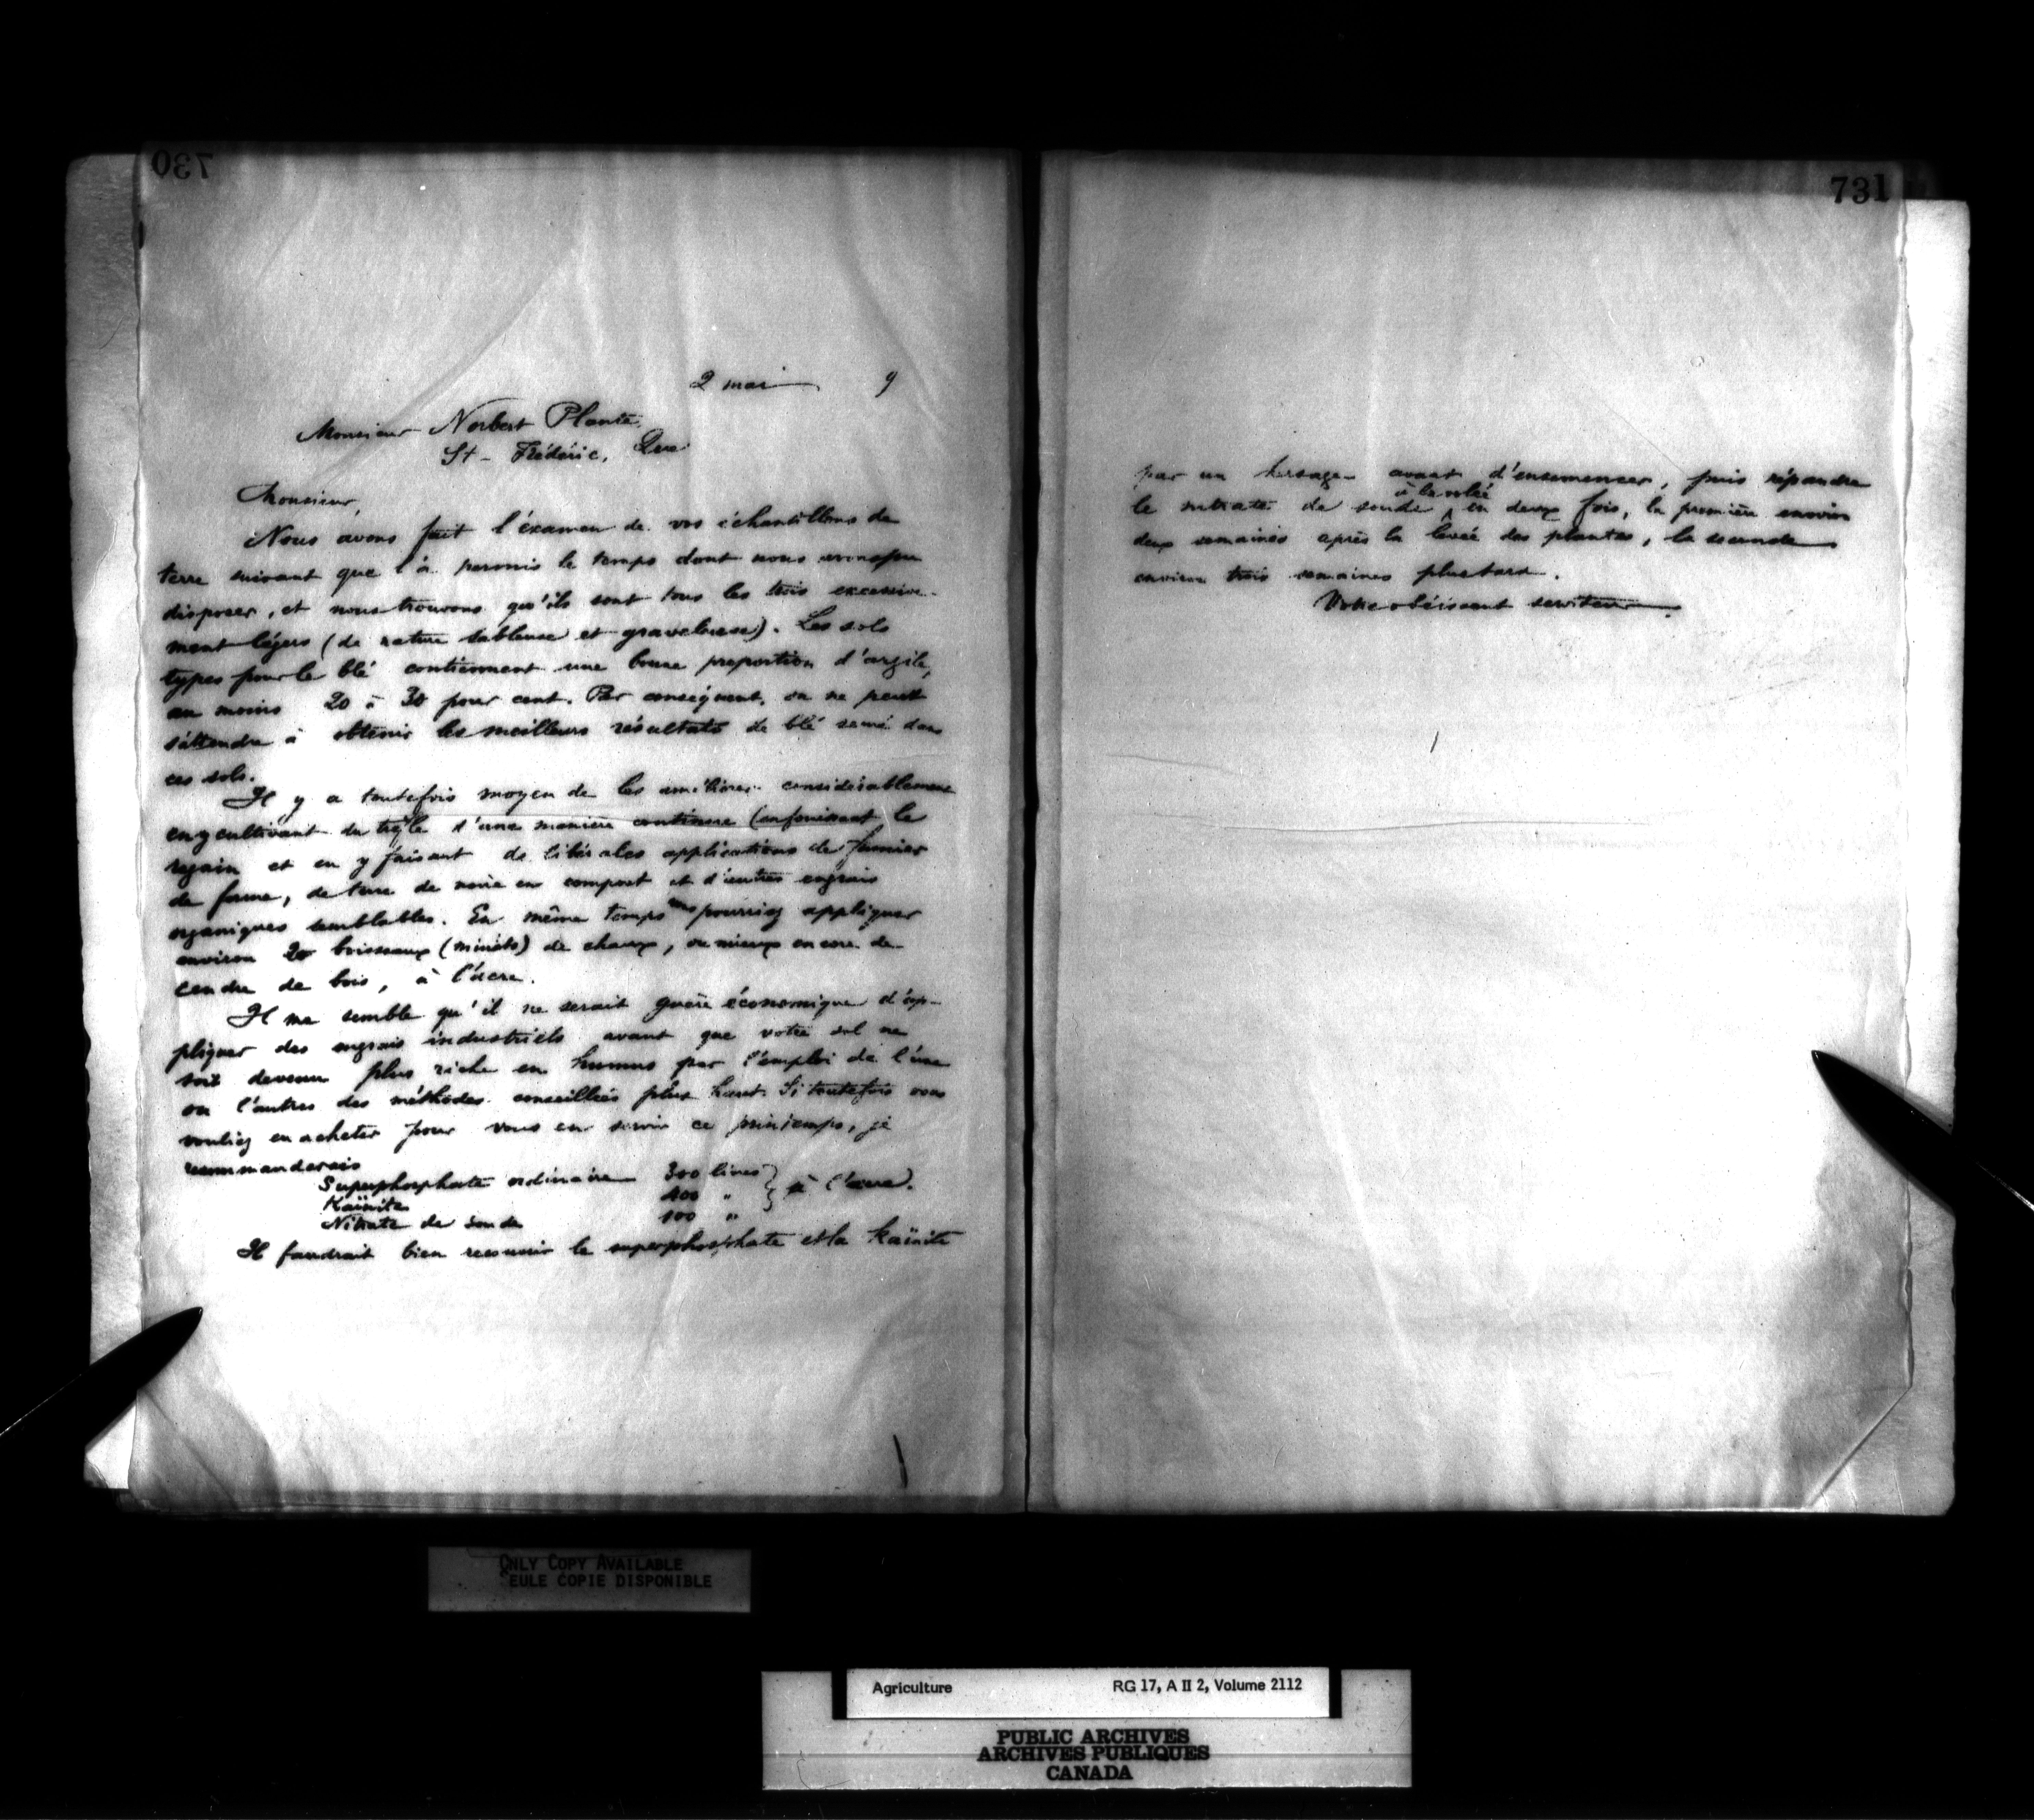 730
2 mai 9
Monsieur Norbert Plante,
St-Frédéric, Que
Monsieur,
Nous avons fait l'éxamen de vos échantillons de
terre suivant que l'a permis le temps dont nous avons pu
disposer, et nous trouvons qu'ils sont tous les trois excessive-
ment légers (de nature sableuse et graveleuse). Les sols
types pour le blé contiennent une bonne proportion d'argile,
au moins 20 à 30 pour cent. Par conséquent, on ne peut
s'attendre à obtenir les meilleurs résultats de blé semé dans
ces sols.
Il y a toutefois moyen de les améliorer considérablement
en y cultivant du trèfle d'une manière continue (enfouissant le
regain et en y faisant de libérales applications de fumier
de ferme, de terre de noire en compost et d'autres engrais
organiques semblables. En même temps vous pourriez appliquer
environ 20 boisseaux (minots) de chaux, ou mieux encore de
cendre de bois, à l'acre.
Il me semble qu'il ne serait guère économique d'ap-
pliquer des engrais industriels avant que votre sol ne
soit devenu plus riche en humus par l'emploi de l'une
ou l'autres des méthodes conseillées plus haut. Si toutefois vous
vouliez en acheter pour vous en servir ce printemps, je
recommanderais
Superphosphate ordinaire 300 livres
Kaïnite 100 " } à l'acre.
Nitrate de soude 100 "
Il faudrait bien recouvrir le superphosphate et la kaïnite
731
par un hersage avant d'ensemencer, puis répandre
le nitrate de soude à la volée en deux fois, la première environ
deux semaines après la levée des plantes, la seconde
environ trois semaines plus tard.
Votre obéissant serviteur
ONLY COPY AVAILABLE
SEULE COPIE DISPONIBLE
Agriculture RG 17, A II 2, Volume 2112
PUBLIC ARCHIVES
ARCHIVES PUBLIQUES
CANADA